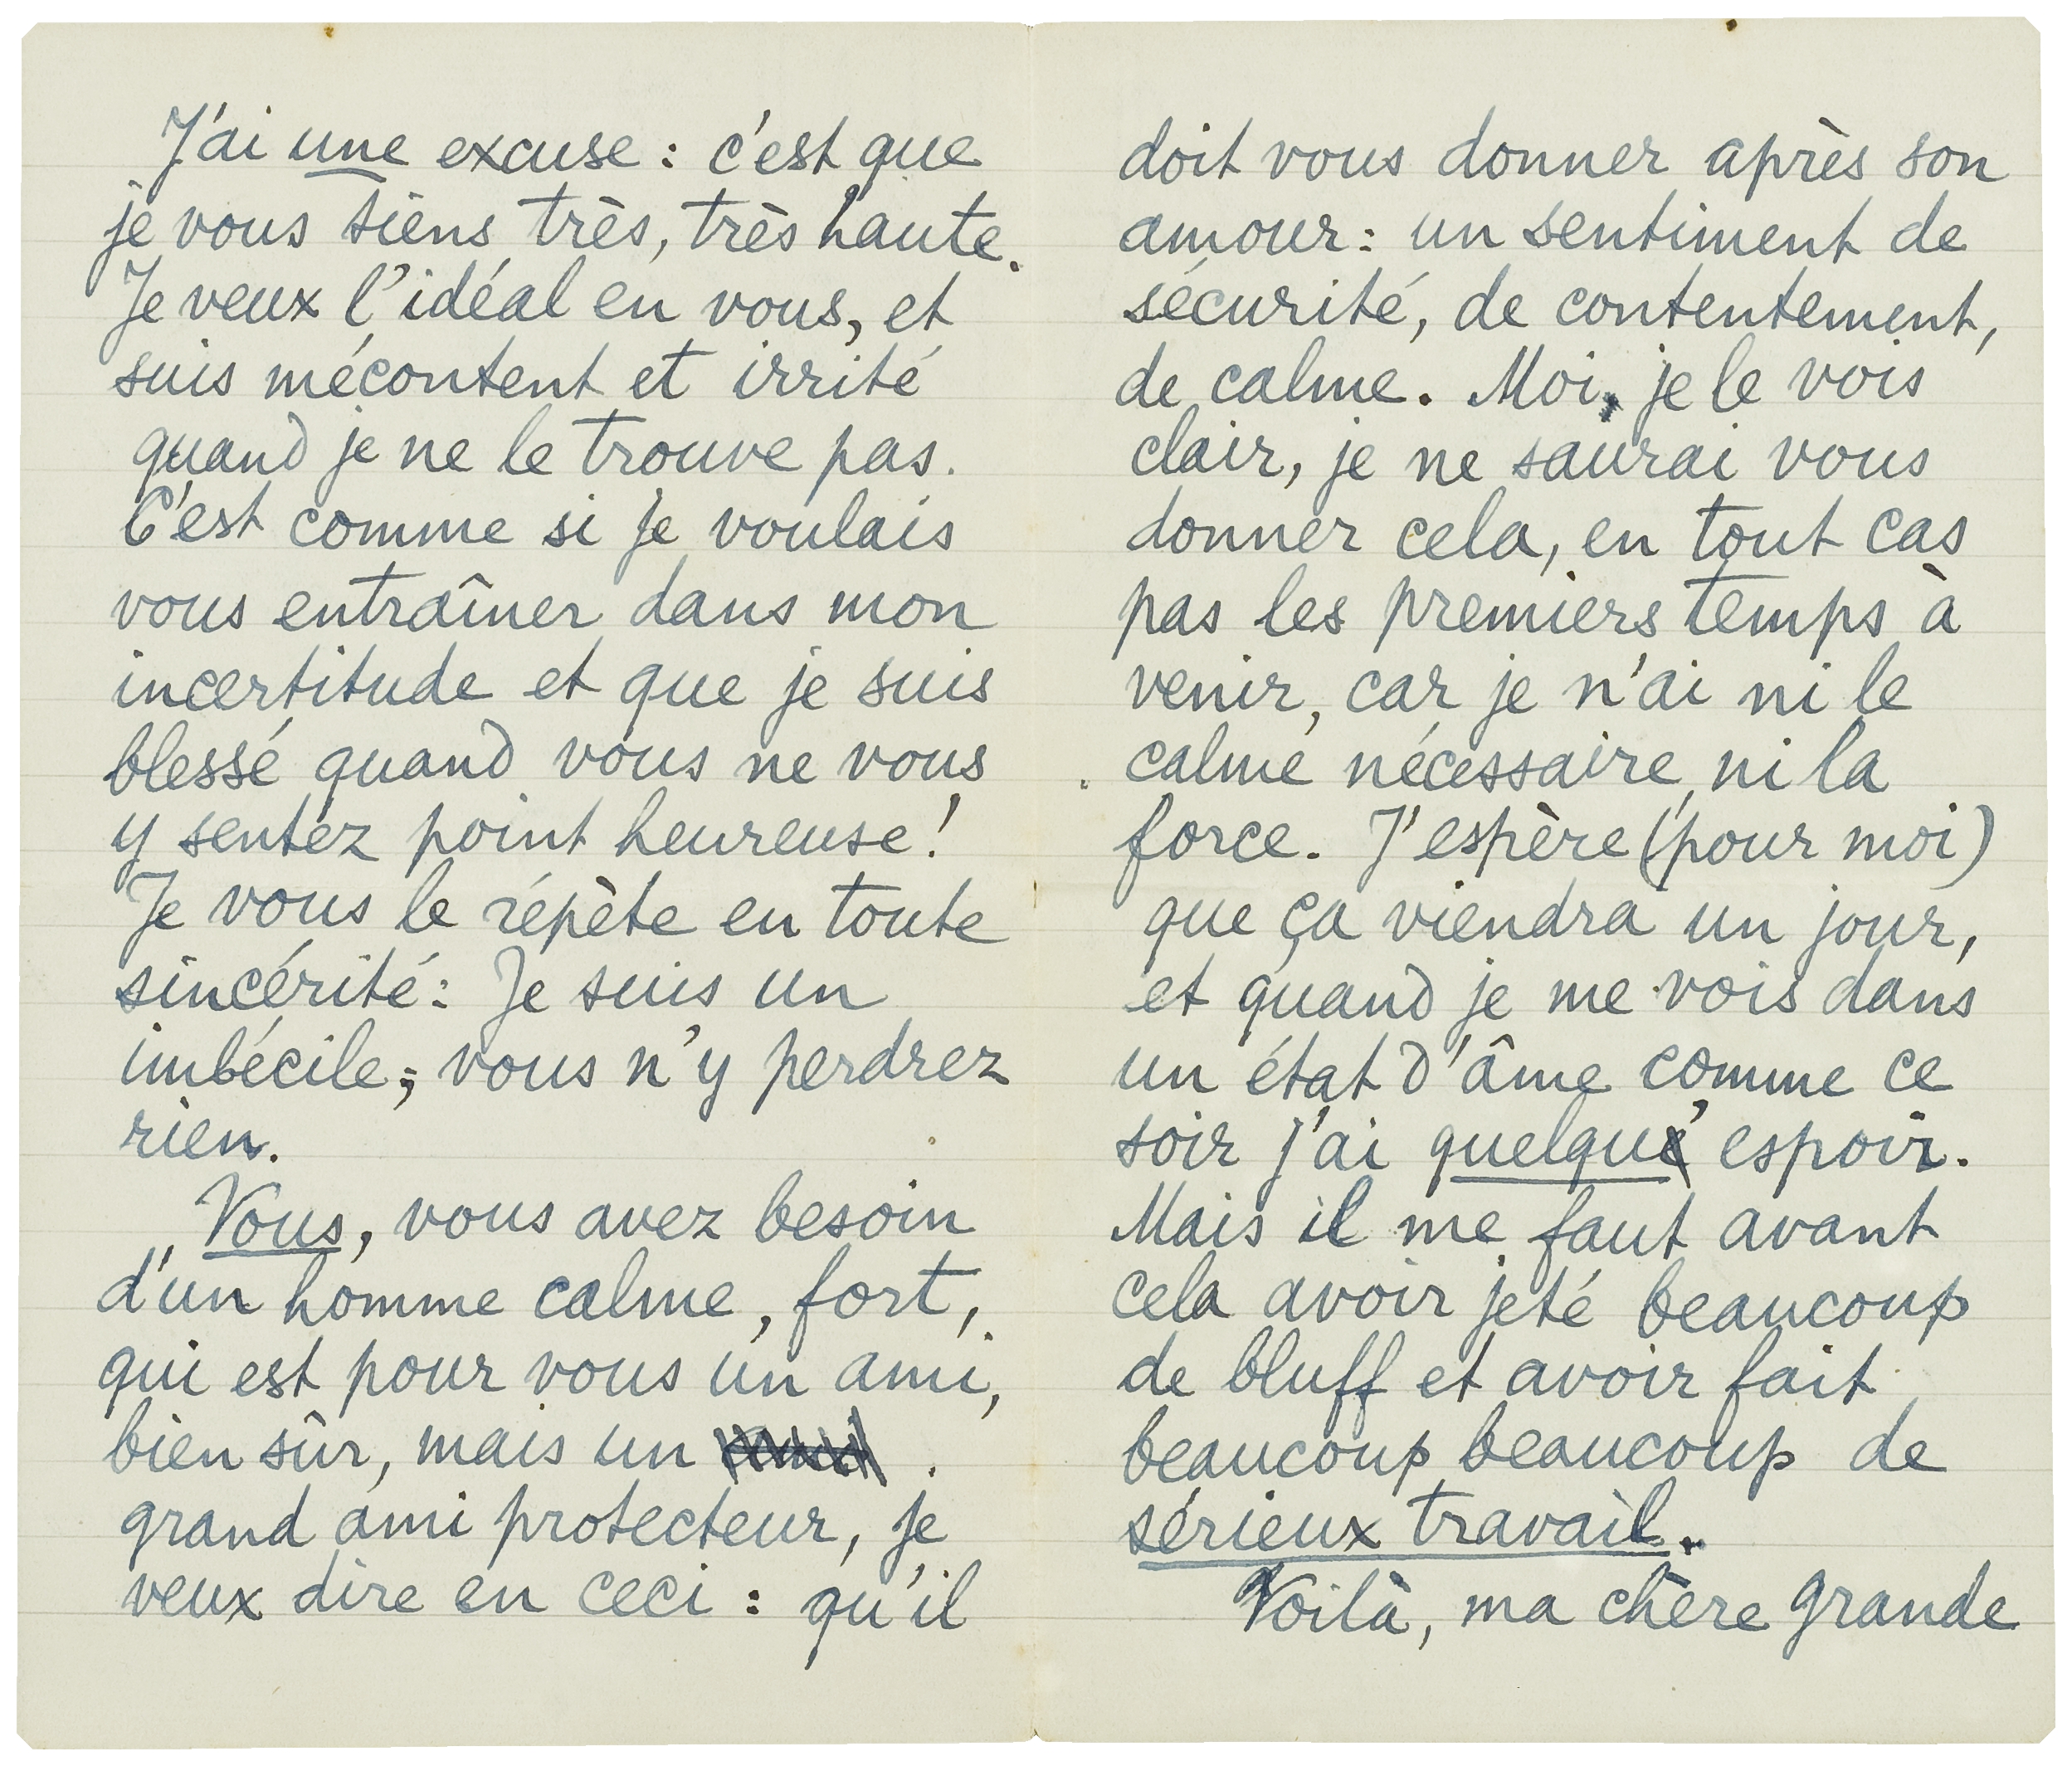 J'ai une excuse : c'est que
je vous tiens très, très haute.
Je veux l'idéal en vous, et
suis mécontent et irrité
quand je ne le trouve pas.
C'est comme si je voulais
vous entraîner dans mon
incertitude et que je suis
blessé quand vous ne vous
y sentez point heureuse!
Je vous le répète en toute
sincérité: Je suis un
imbécile; vous n'y perdrez
rien.
Vous, vous avez besoin
d'un homme calme, fort,
qui est pour vous un ami,
bien sûr, mais un
grand ami protecteur, je
veux dire en ceci : qu'il
doit vous donner après son
amour: un sentiment de
sécurité, de contentement,
de calme. Moi, je le vois
clair, je ne saurai vous
donner cela, en tout cas
pas les premiers temps à
venir, car je n'ai ni le
calme nécessaire, ni la
force. J'espère (pour moi)
que ça viendra un jour,
et quand je me vois dans
un état d'âme comme ce
soir j'ai quelqu' espoir.
Mais il me faut avant
cela avoir jeté beaucoup
de bluff et avoir fait
beaucoup beaucoup de
sérieux travail.
Voilà, ma chère grande